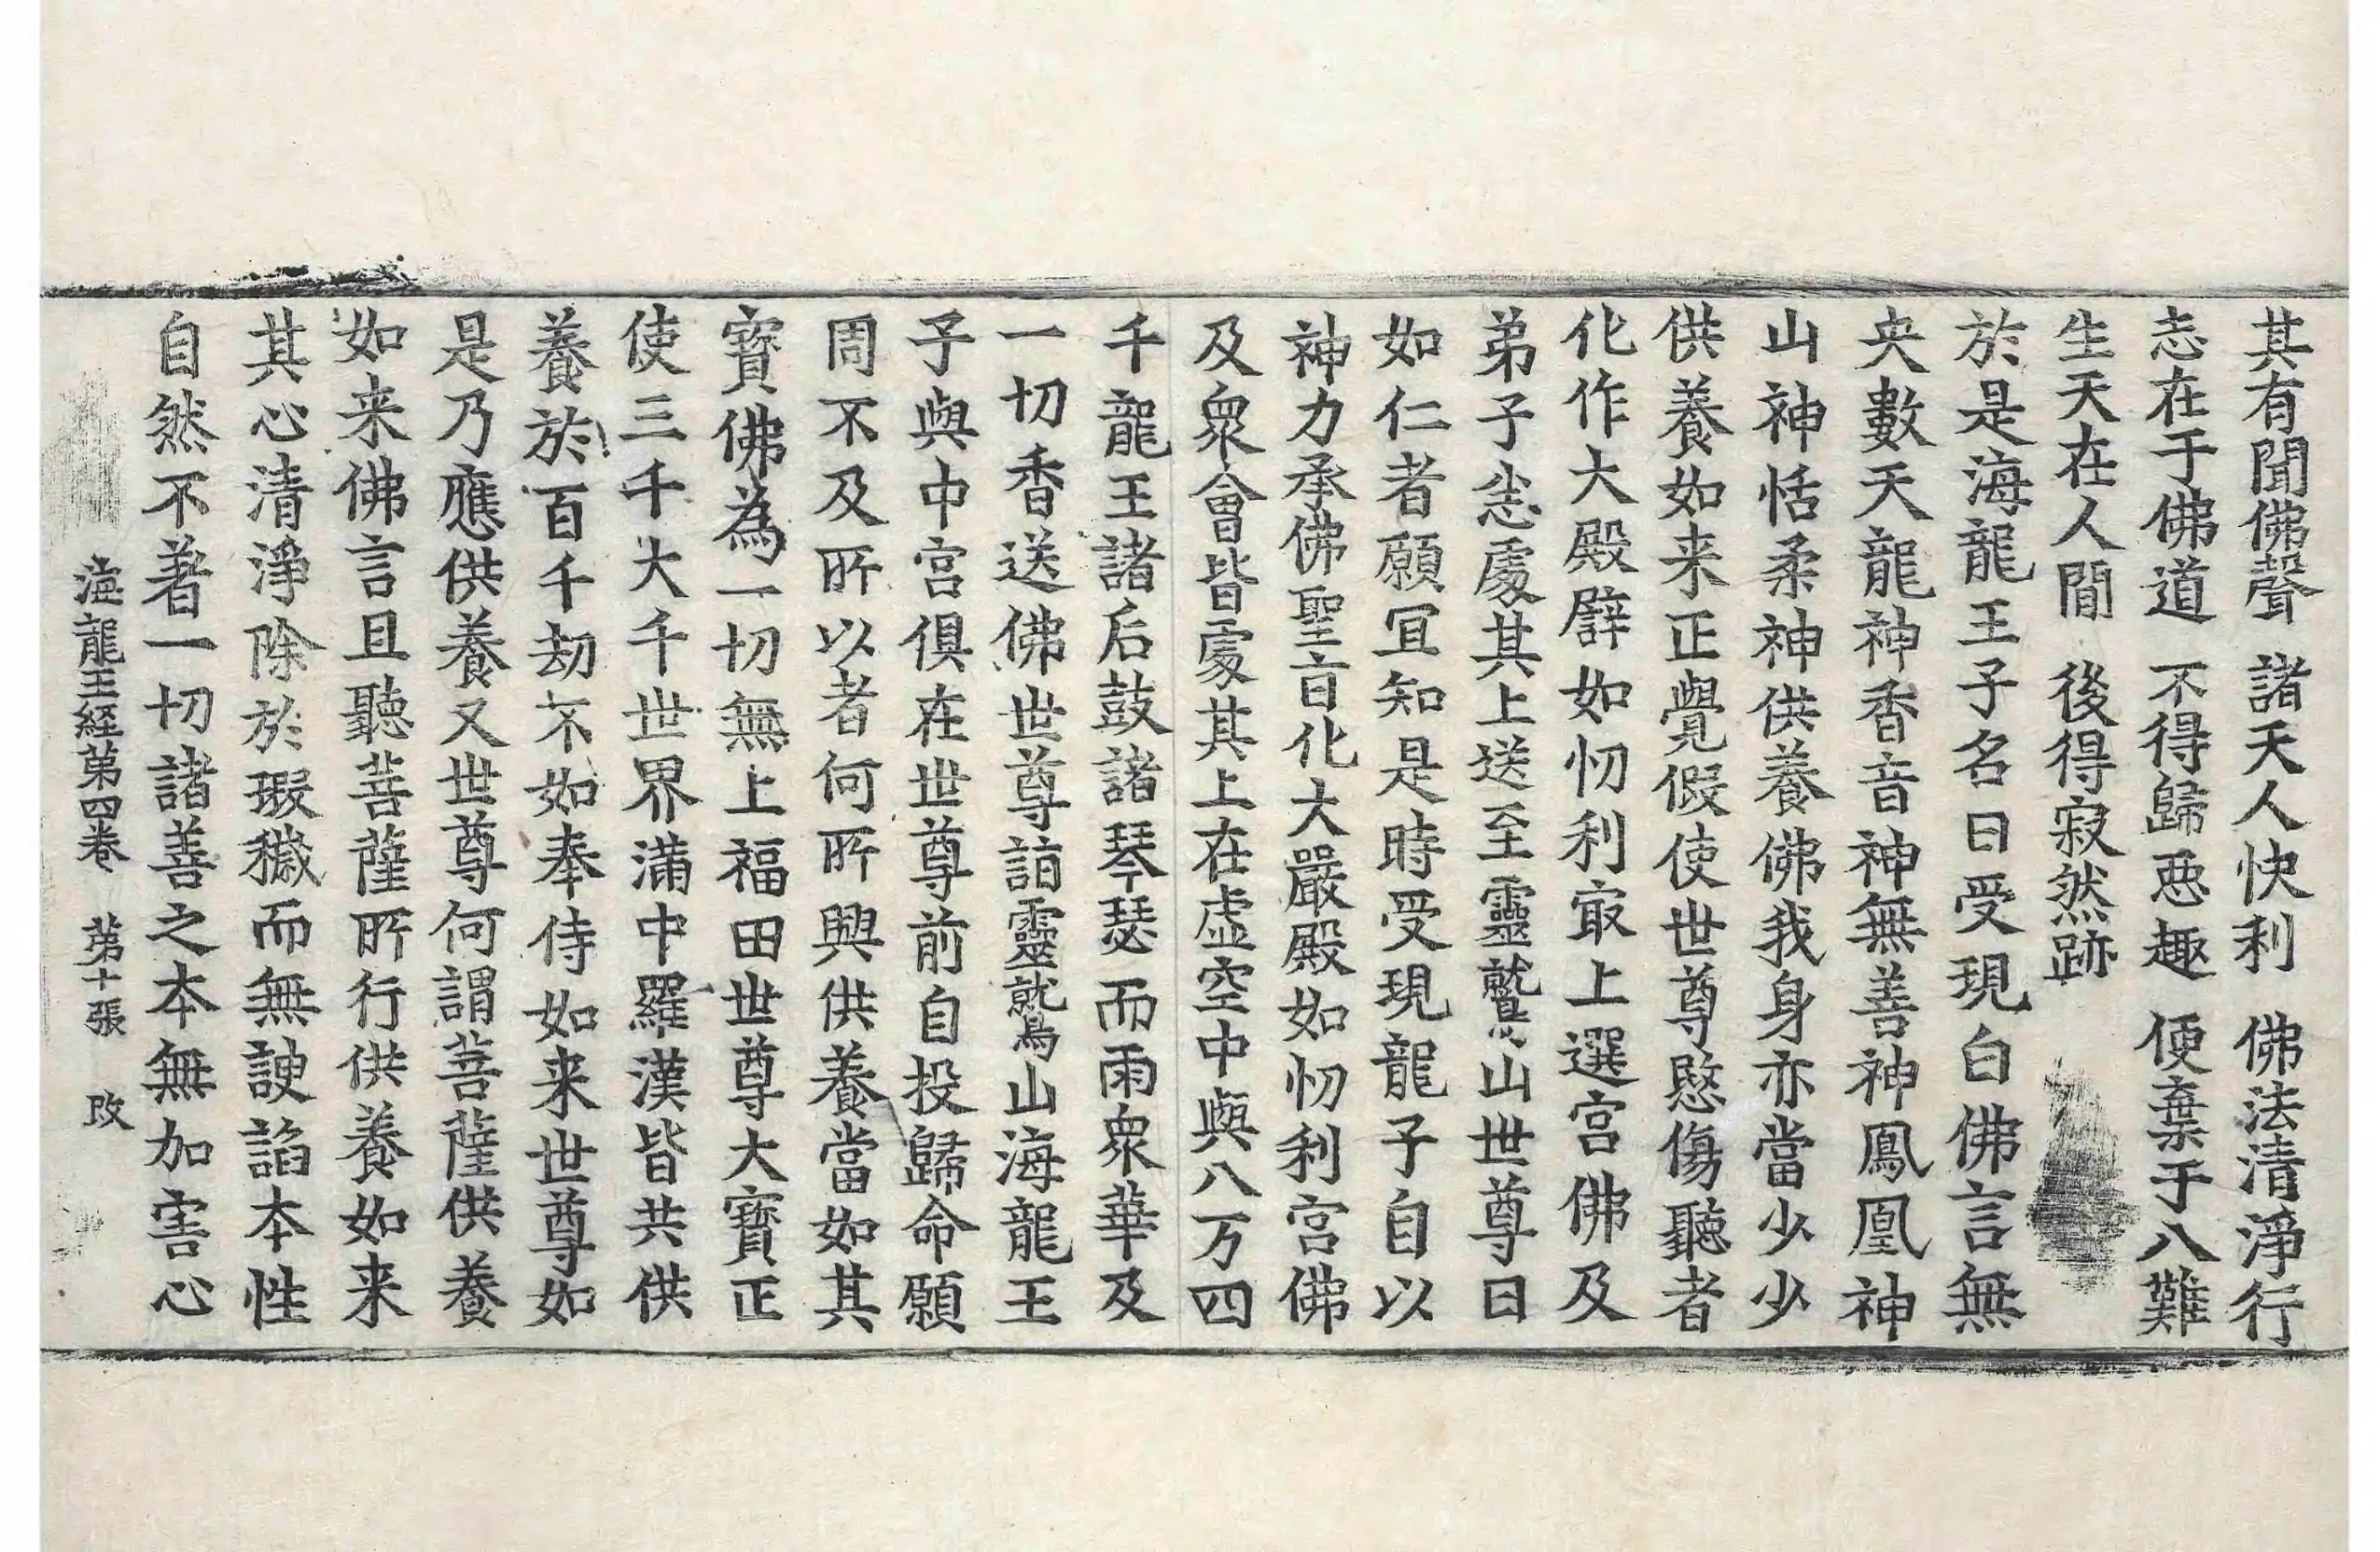 其有聞佛聲　諸天人快利　佛法清淨行
志在于佛道　不得歸惡趣　便棄于八難
生天在人間　後得寂然跡
於是海龍王子名曰受現白佛言無
央數天龍神香音神無善神鳳凰神
山神恬柔神供養佛我身亦當少少
供養如来正覺假使世尊愍傷聽者
化作大殿譬如忉利㝡上選宮佛及
弟子悉處其上送至靈鷲山世尊曰
如仁者願冝知是時受現龍子自以
神力承佛聖旨化大嚴殿如忉利宮佛
及衆會皆處其上在虛空中與八万四
千龍王諸后鼓諸琴瑟而雨衆華及
一切香送佛世尊詣靈鷲山海龍王
子與中宮俱在世尊前自投歸命願
周不及所以者何所興供養當如其
寶佛為一切無上福田世尊大寶正
使三千大千世界滿中羅漢皆共供
養於百千劫不如奉侍如来世尊如
是乃應供養又世尊何謂菩薩供養
如来佛言且聽菩薩所行供養如来
其心清淨除於瑕穢而無諛諂本性
自然不著一切諸善之本無加害心
海龍王経第四卷　第十張　改